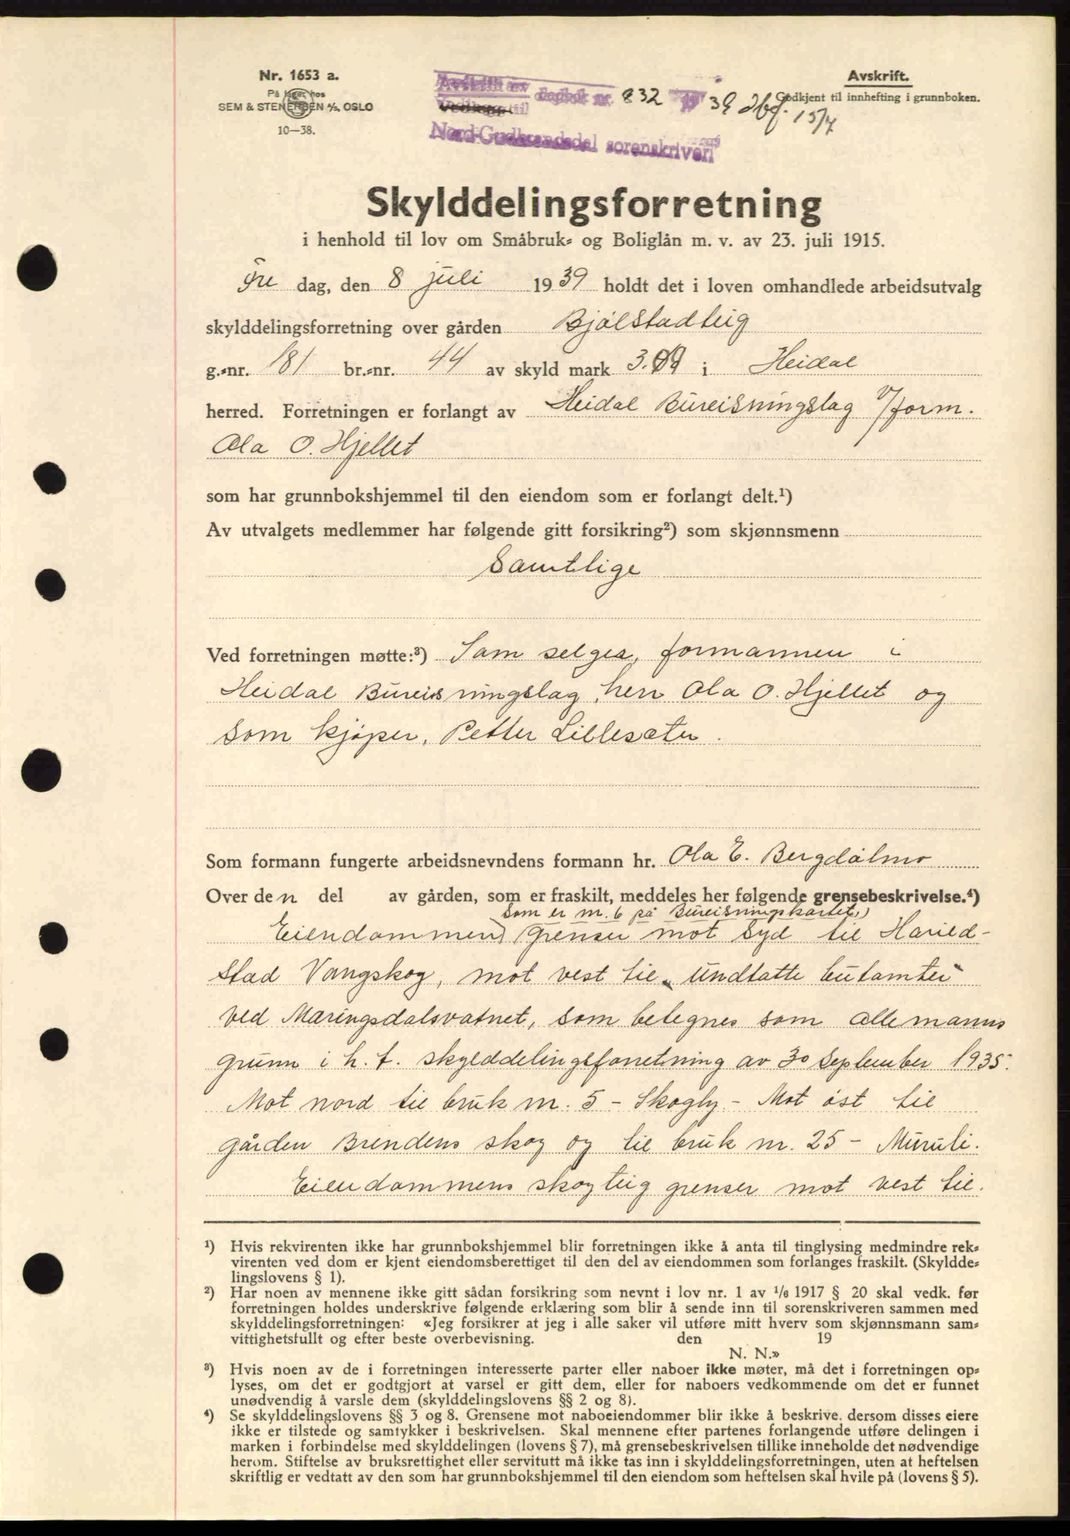 Nr. 1653 a.
På lager hos
SEM & STENERSEN A/S, OSLO
10—38.
Avskrift av dagbok nr. 832 19 39
Avskrift.
Godkjent til innhefting i grunnboken.
15/7
Nord-Gudbrandsdal sorenskriveri
Skylddelingsforretning
i henhold til lov om Småbruk- og Boliglån m. v. av 23. juli 1915.
Fre dag, den 8 juli 1939 holdt det i loven omhandlede arbeidsutvalg
skylddelingsforretning over gården Bjølstadteig
g.-nr. 181 br.-nr. 44 av skyld mark 3.09 i Heidal
herred. Forretningen er forlangt av Heidal Bureisningslag v/form.
Ola O. Hjellet
som har grunnbokshjemmel til den eiendom som er forlangt delt.¹)
Av utvalgets medlemmer har følgende gitt forsikring²) som skjønnsmenn
Samtlige
Ved forretningen møtte:³) Som selger, formannen i
Heidal Bureisningslag, herr Ola O. Hjellet og
som kjøper, Petter Lillesæter.
Som formann fungerte arbeidsnevndens formann hr. Ola E. Bergdølmo
Over den del av gården, som er fraskilt, meddeles her følgende grensebeskrivelse.⁴)
Som er nr. 6 på Bureisningskartet,)
Eiendommen) grenser mot syd til Haried-
stad Vangskog, mot vest til "undtatte
ved Mæringsdalsvatnet, som betegnes som allemanns
grunn i h. t. skylddelingsforretning av 30 September 1935.
Mot nord til bruk nr. 5 - Skogly - Mot øst til
gården Brendens skog og til bruk nr. 25 - Muruli.
Eiendommens skogteig grenser mot vest til.
¹) Hvis rekvirenten ikke har grunnbokshjemmel blir forretningen ikke å anta til tinglysing medmindre rek-
virenten ved dom er kjent eiendomsberettiget til den del av eiendommen som forlanges fraskilt. (Skyldde-
lingslovens § 1).
²) Har noen av mennene ikke gitt sådan forsikring som nevnt i lov nr. 1 av 1/6 1917 § 20 skal vedk. før
forretningen holdes underskrive følgende erklæring som blir å sende inn til sorenskriveren sammen med
skylddelingsforretningen: «Jeg forsikrer at jeg i alle saker vil utføre mitt hverv som skjønnsmann sam-
vittighetsfullt og efter beste overbevisning. den 19
N. N.»
³) Hvis noen av de i forretningen interesserte parter eller naboer ikke møter, må det i forretningen op-
lyses, om det er godtgjort at varsel er gitt dem, eller for naboers vedkommende om det er funnet
unødvendig å varsle dem (skylddelingslovens §§ 2 og 8).
⁴) Se skylddelingslovens §§ 3 og 8. Grensene mot naboeiendommer blir ikke å beskrive, dersom disses eiere
ikke er tilstede og samtykker i beskrivelsen. Skal mennene efter partenes forlangende utføre delingen i
marken i forbindelse med skylddelingen (lovens § 7), må grensebeskrivelsen tillike inneholde det nødvendige
herom. Stiftelse av bruksrettighet eller servitutt må ikke tas inn i skylddelingsforretningen, uten at heftelsen
skriftlig er vedtatt av den som har grunnbokshjemmel til den eiendom som heftelsen skal hvile på (lovens § 5).